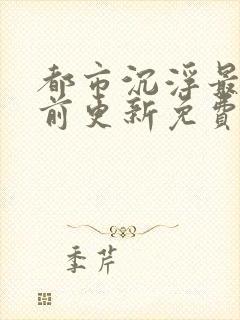 都市沉浮最
前更新免费
季芹